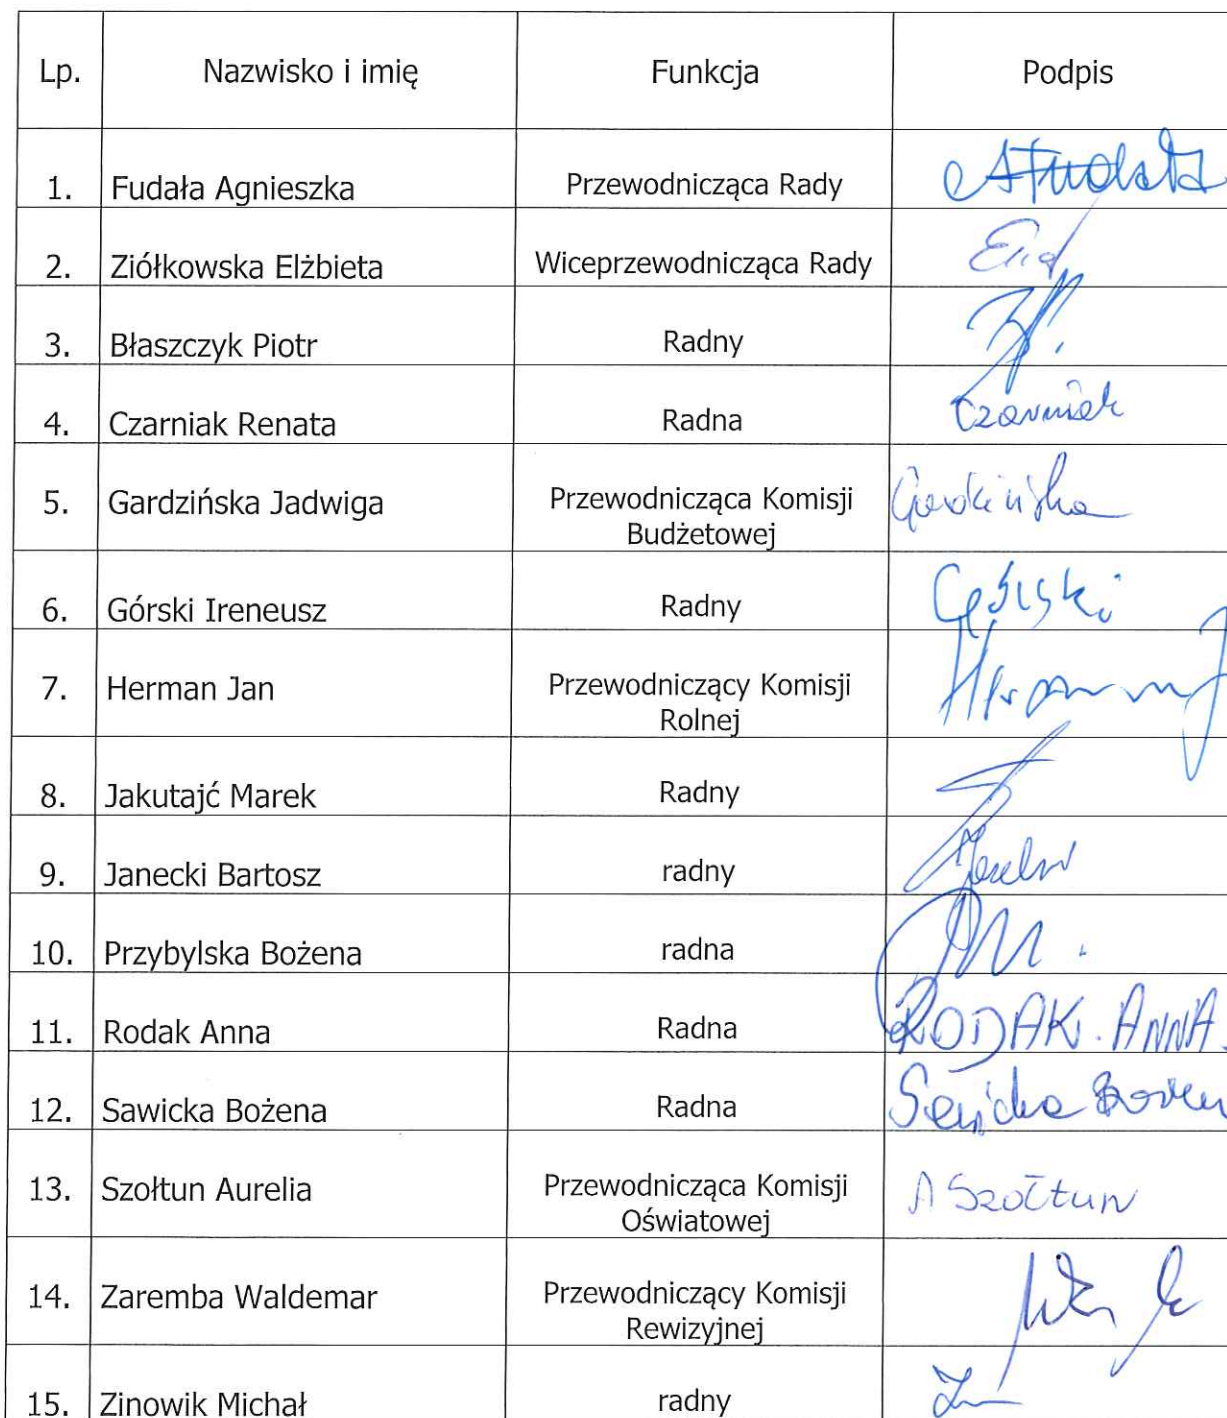 Lp. Nazwisko i imię Funkcja Podpis
1. Fudała Agnieszka Przewodnicząca Rady
2. Ziółkowska Elżbieta Wiceprzewodnicząca Rady
3. Błaszczyk Piotr Radny
4. Czarniak Renata Radna Czarniak
5. Gardzińska Jadwiga Przewodnicząca Komisji
Budżetowej
6. Górski Ireneusz Radny Górski
7. Herman Jan Przewodniczący Komisji
Rolnej
8. Jakutajć Marek Radny
9. Janecki Bartosz radny
10. Przybylska Bożena radna
11. Rodak Anna Radna RODAK. ANNA.
12. Sawicka Bożena Radna
13. Szołtun Aurelia Przewodnicząca Komisji A Szołtun
Oświatowej
14. Zaremba Waldemar Przewodniczący Komisji
Rewizyjnej
15. Zinowik Michał radny